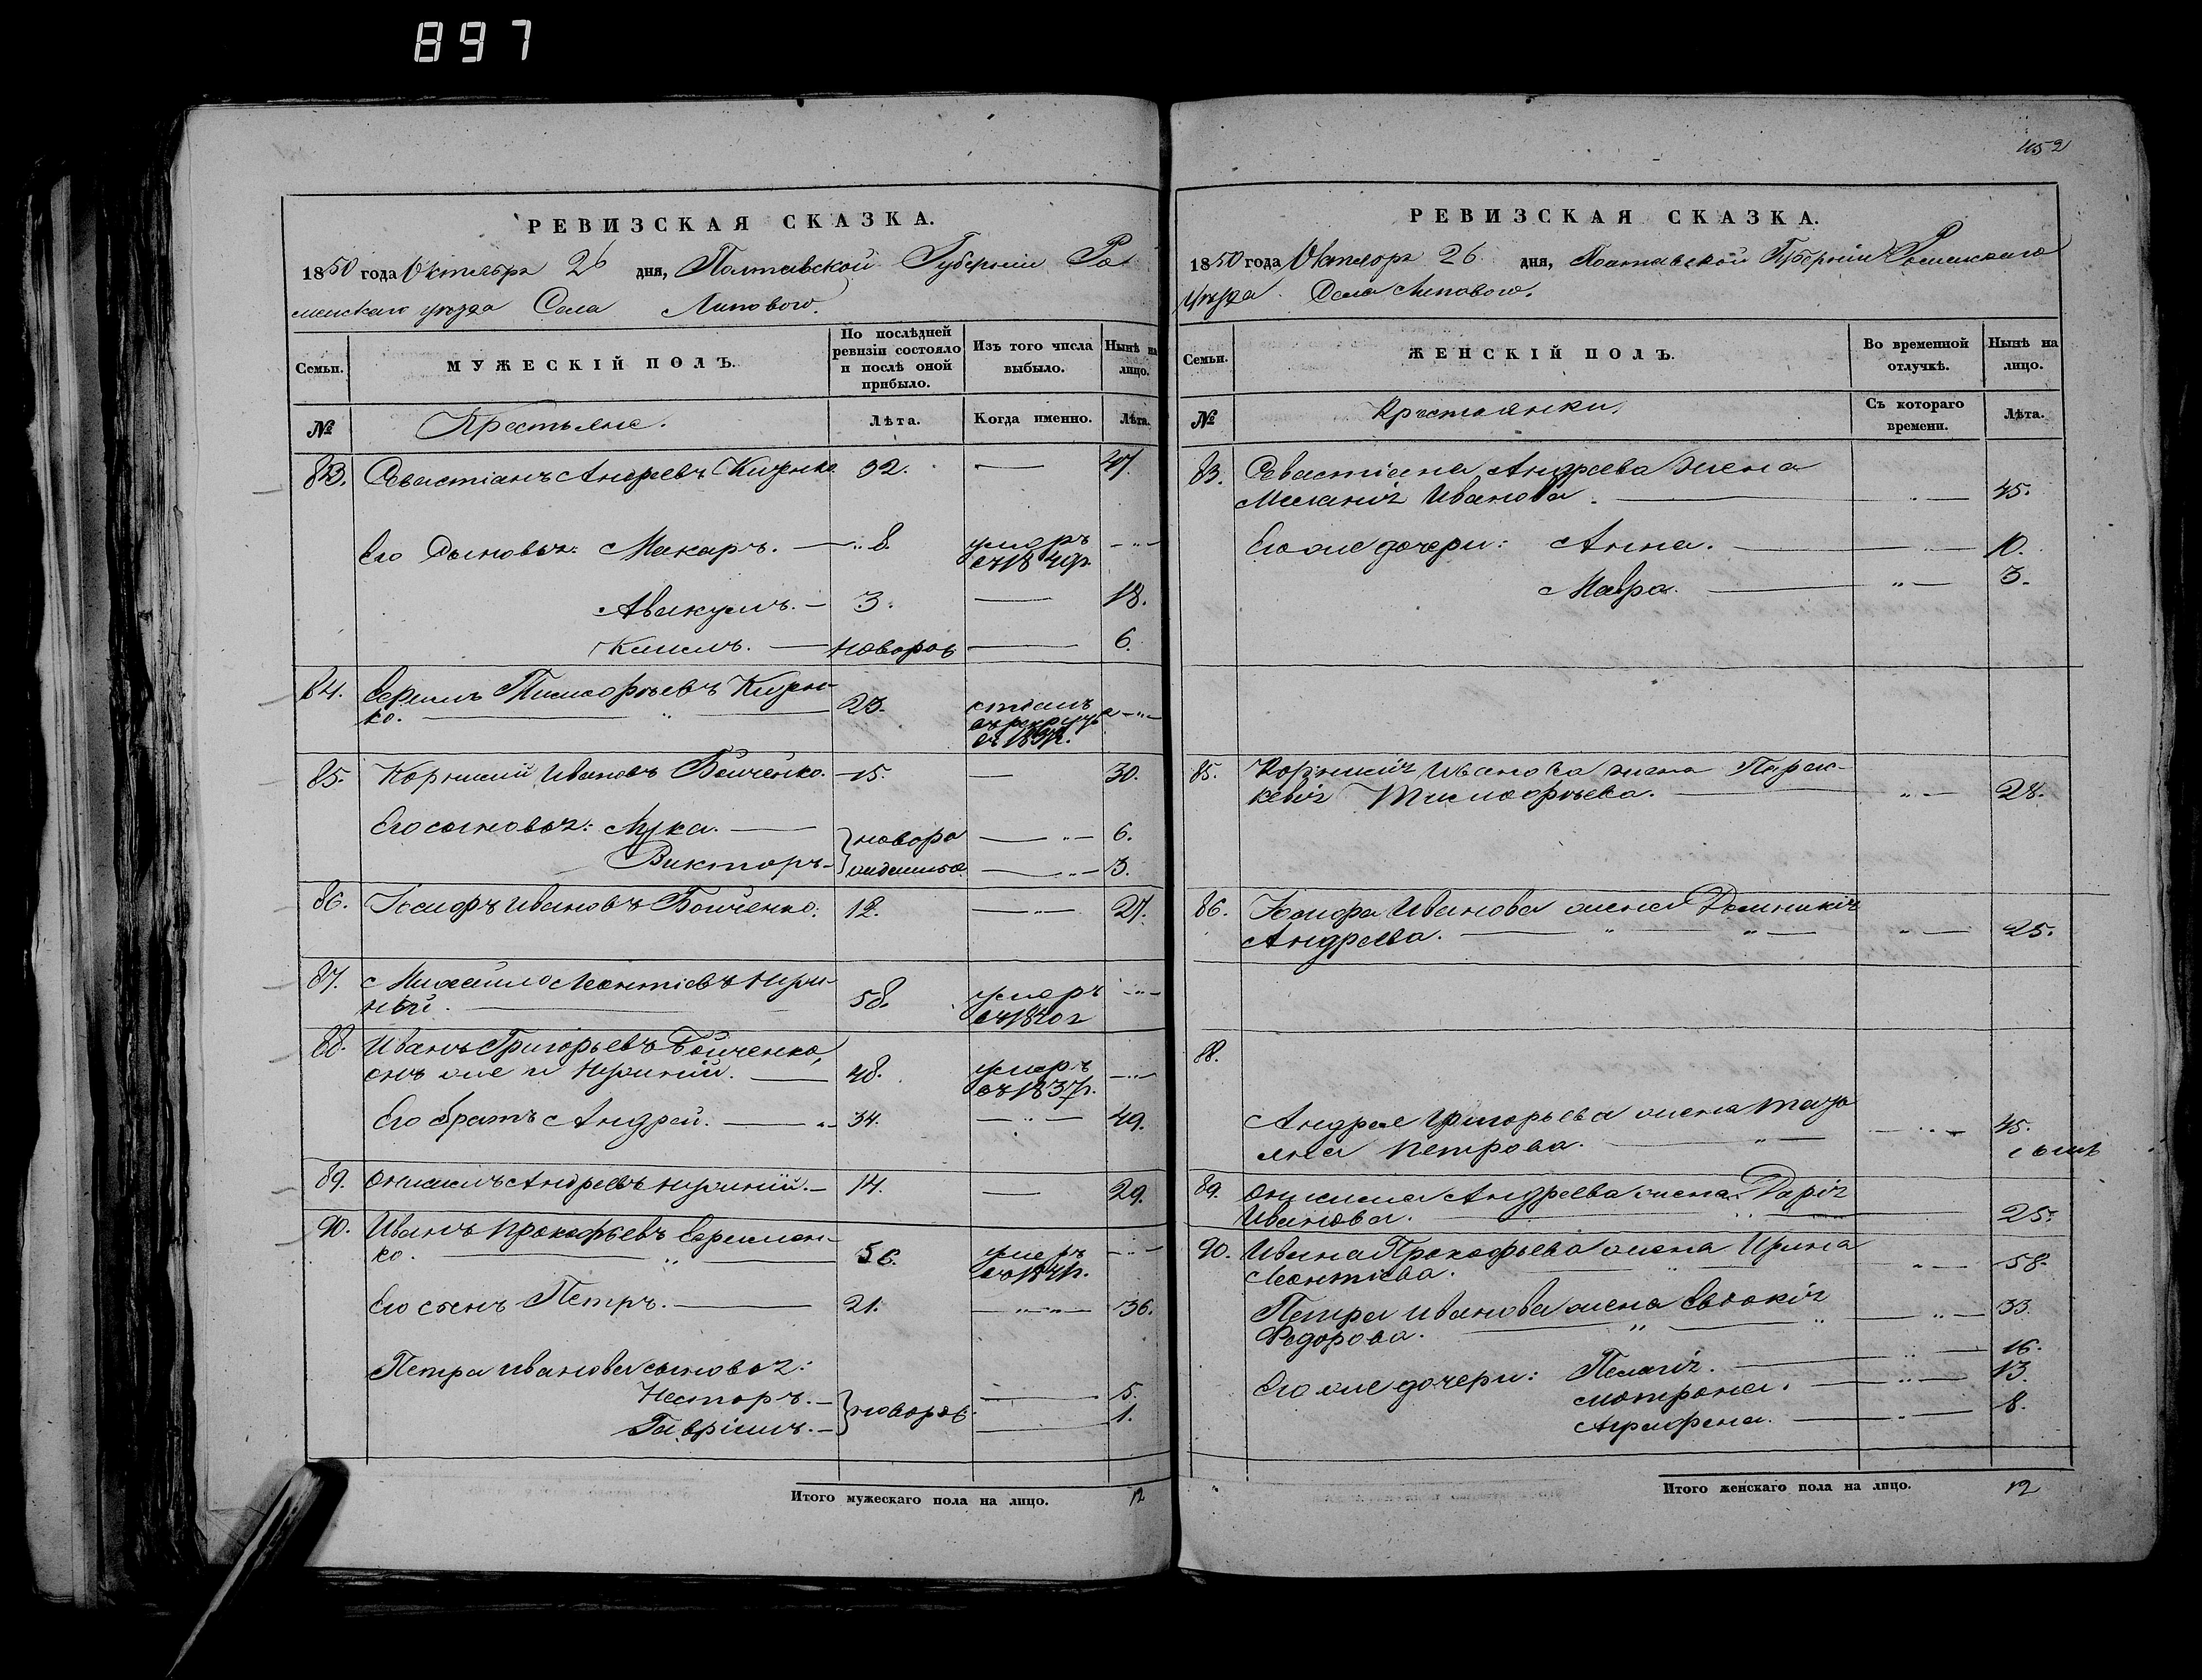 897
РЕВИЗСКАЯ СКАЗКА.
1850 года Октября 26 дня, Полтавской Губерніи Ро-
менскаго уѣзда Села Липового.
Семьи.
МУЖЕСКІЙ ПОЛЪ.
По послѣдней ревизіи состояло и послѣ оной прибыло.
Изъ того числа выбыло.
Нынѣ на лицо.
№
Крестьяне.
Лѣта.
Когда именно.
Лѣта.
83. Севастіанъ Андреевъ 32. — 47.
Его Сыновья: Макаръ. — 8. умеръ
Авакумъ. — 3. — 18.
Климъ. — новорож — 6.
84. Тимофѣевъ
ко. — 23.
85. Корнилій Ивановъ Бойченко. — 15. — 30.
Его сыновья: Лука. — новоро — 6.
Викторъ — жденные — 3.
86. Ивановъ Бойченко. 12. — 27.
87. Михайло Леонтіевъ
ный. — 58. умеръ
въ 1840 г
88. Иванъ Григорьевъ Бойченко,
онъ же и — 48. умеръ
въ 1837 г.
Его братъ Андрей. — 34. — 49.
89. Онисимъ Андреевъ — 14. — 29.
90. Иванъ Прокофьевъ Ефимен-
ко. — умеръ
Его сынъ Петръ. — 21. — 36.
Петра Иванова сыновья:
Несторъ. — новорож. — 5.
Гавріилъ. — 1.
Итого мужескаго пола на лицо. 12
452
РЕВИЗСКАЯ СКАЗКА.
1850 года Октября 26 дня, Полтавской Губерніи Роменскаго
уѣзда Села Липового.
Семьи.
ЖЕНСКІЙ ПОЛЪ.
Во временной отлучкѣ.
Нынѣ на лицо.
№
Крестьянки.
Съ котораго времени.
Лѣта.
83. Севастіана Андреева жена
Меланія Иванова. — 45.
Его же дочери: Анна. — 10.
Мавра. — 3.
85. Корнилія Иванова жена Парас-
кевія Тимофѣева. — 28.
86. Иванова жена Домникія
Андреева. — 25.
88.
Андрея Григорьева жена Татья
яна Петрова. — 45.
89. Онисима Андреева жена Дарія
Иванова. — 25.
90. Ивана Прокофьева жена Ирина
Леонтіева. — 58.
Петра Иванова жена Евдокія
Федорова. — 33.
Его же дочери: Пелагія. — 16.
Мотрона. — 13.
Аграфена. — 8.
Итого женскаго пола на лицо. 12